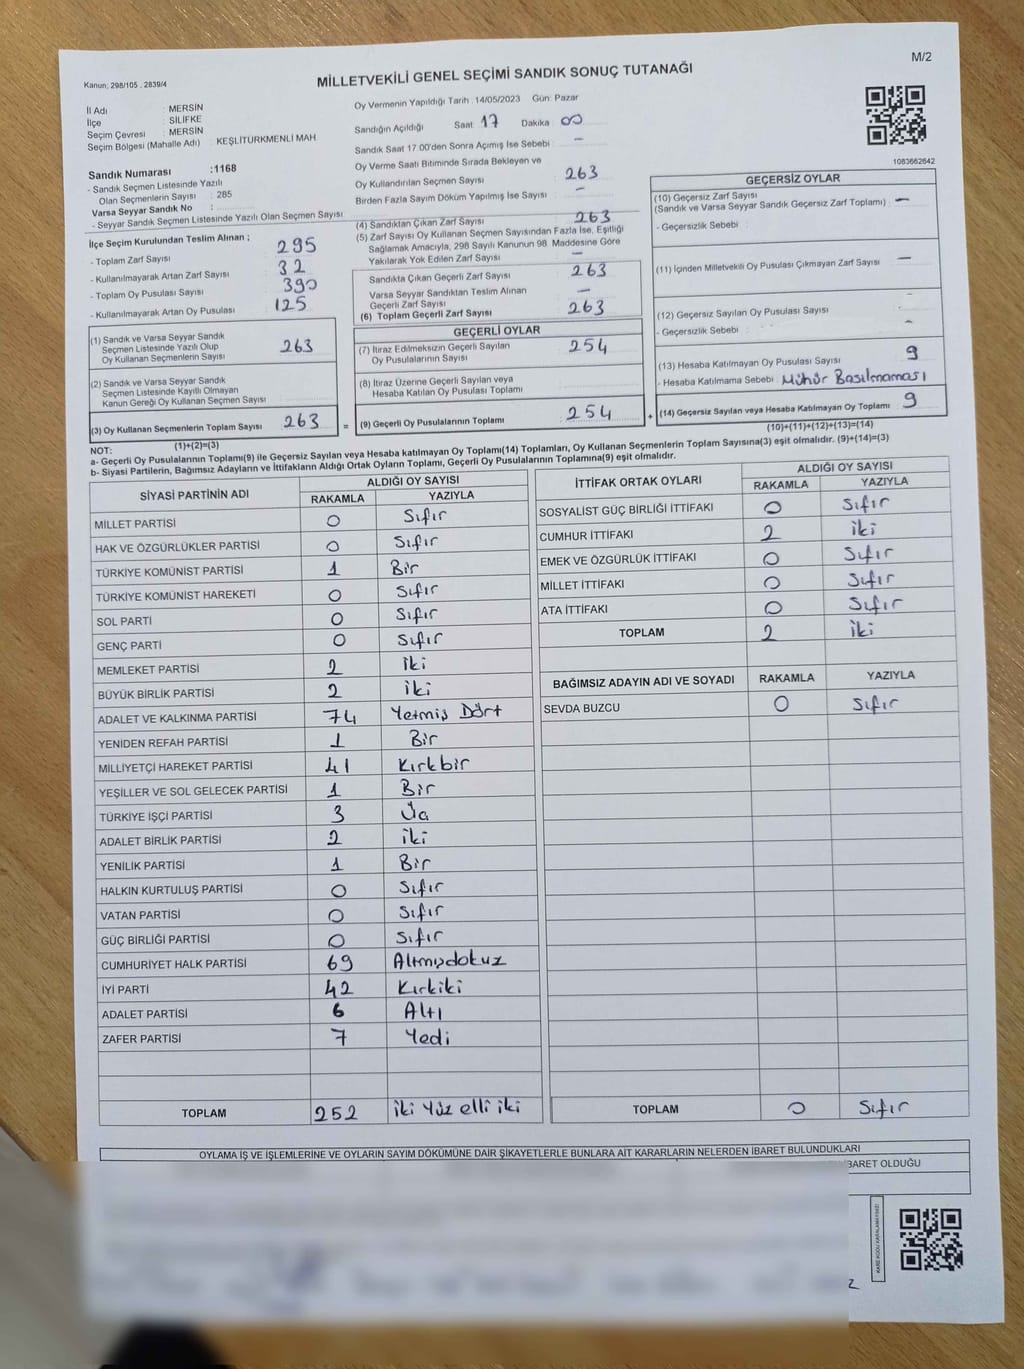 M/2
Kanun: 298/105 , 2839/4
MİLLETVEKİLİ GENEL SEÇİMİ SANDIK SONUÇ TUTANAĞI
İl Adı : MERSİN
İlçe : SİLİFKE
Seçim Çevresi : MERSİN
Seçim Bölgesi (Mahalle Adı) : KEŞLİTÜRKMENLİ MAH
Sandık Numarası :1168
- Sandık Seçmen Listesinde Yazılı
Olan Seçmenlerin Sayısı : 285
Varsa Seyyar Sandık No :
- Seyyar Sandık Seçmen Listesinde Yazılı Olan Seçmen Sayısı
İlçe Seçim Kurulundan Teslim Alınan ;
- Toplam Zarf Sayısı 295
- Kullanılmayarak Artan Zarf Sayısı 32
- Toplam Oy Pusulası Sayısı 390
- Kullanılmayarak Artan Oy Pusulası 125
(1) Sandık ve Varsa Seyyar Sandık
Seçmen Listesinde Yazılı Olup
Oy Kullanan Seçmenlerin Sayısı 263
(2) Sandık ve Varsa Seyyar Sandık
Seçmen Listesinde Kayıtlı Olmayan
Kanun Gereği Oy Kullanan Seçmen Sayısı
(3) Oy Kullanan Seçmenlerin Toplam Sayısı 263
(1)+(2)=(3)
Oy Vermenin Yapıldığı Tarih : 14/05/2023 Gün: Pazar
Sandığın Açıldığı Saat 17 Dakika 00
Sandık Saat 17.00'den Sonra Açımış İse Sebebi : -
Oy Verme Saati Bitiminde Sırada Bekleyen ve
Oy Kullandırılan Seçmen Sayısı 263
Birden Fazla Sayım Döküm Yapılmış İse Sayısı -
(4) Sandıktan Çıkan Zarf Sayısı 263
(5) Zarf Sayısı Oy Kullanan Seçmen Sayısından Fazla İse, Eşitliği
Sağlamak Amacıyla, 298 Sayılı Kanunun 98. Maddesine Göre
Yakılarak Yok Edilen Zarf Sayısı -
Sandıkta Çıkan Geçerli Zarf Sayısı 263
Varsa Seyyar Sandıktan Teslim Alınan
Geçerli Zarf Sayısı -
(6) Toplam Geçerli Zarf Sayısı 263
GEÇERLİ OYLAR
(7) İtiraz Edilmeksizin Geçerli Sayılan
Oy Pusulalarının Sayısı 254
(8) İtiraz Üzerine Geçerli Sayılan veya
Hesaba Katılan Oy Pusulası Toplamı
= (9) Geçerli Oy Pusulalarının Toplamı 254
1083662642
GEÇERSİZ OYLAR
(10) Geçersiz Zarf Sayısı
(Sandık ve Varsa Seyyar Sandık Geçersiz Zarf Toplamı) -
- Geçersizlik Sebebi :
(11) İçinden Milletvekili Oy Pusulası Çıkmayan Zarf Sayısı -
(12) Geçersiz Sayılan Oy Pusulası Sayısı -
- Geçersizlik Sebebi : -
(13) Hesaba Katılmayan Oy Pusulası Sayısı 9
- Hesaba Katılmama Sebebi : Mühür Basılmaması
+ (14) Geçersiz Sayılan veya Hesaba Katılmayan Oy Toplamı 9
(10)+(11)+(12)+(13)=(14)
NOT:
a- Geçerli Oy Pusulalarının Toplamı(9) ile Geçersiz Sayılan veya Hesaba katılmayan Oy Toplamı(14) Toplamları, Oy Kullanan Seçmenlerin Toplam Sayısına(3) eşit olmalıdır. (9)+(14)=(3)
b- Siyasi Partilerin, Bağımsız Adayların ve İttifakların Aldığı Ortak Oyların Toplamı, Geçerli Oy Pusulalarının Toplamına(9) eşit olmalıdır.
SİYASİ PARTİNİN ADI ALDIĞI OY SAYISI
RAKAMLA YAZIYLA
MİLLET PARTİSİ 0 Sıfır
HAK VE ÖZGÜRLÜKLER PARTİSİ 0 Sıfır
TÜRKİYE KOMÜNİST PARTİSİ 1 Bir
TÜRKİYE KOMÜNİST HAREKETİ 0 Sıfır
SOL PARTİ 0 Sıfır
GENÇ PARTİ 0 Sıfır
MEMLEKET PARTİSİ 2 iki
BÜYÜK BİRLİK PARTİSİ 2 iki
ADALET VE KALKINMA PARTİSİ 74 Yetmiş Dört
YENİDEN REFAH PARTİSİ 1 Bir
MİLLİYETÇİ HAREKET PARTİSİ 41 Kırkbir
YEŞİLLER VE SOL GELECEK PARTİSİ 1 Bir
TÜRKİYE İŞÇİ PARTİSİ 3 Üç
ADALET BİRLİK PARTİSİ 2 iki
YENİLİK PARTİSİ 1 Bir
HALKIN KURTULUŞ PARTİSİ 0 Sıfır
VATAN PARTİSİ 0 Sıfır
GÜÇ BİRLİĞİ PARTİSİ 0 Sıfır
CUMHURİYET HALK PARTİSİ 69 Altmışdokuz
İYİ PARTİ 42 Kırkiki
ADALET PARTİSİ 6 Altı
ZAFER PARTİSİ 7 Yedi
TOPLAM 252 iki Yüz elli iki
İTTİFAK ORTAK OYLARI ALDIĞI OY SAYISI
RAKAMLA YAZIYLA
SOSYALİST GÜÇ BİRLİĞİ İTTİFAKI 0 Sıfır
CUMHUR İTTİFAKI 2 iki
EMEK VE ÖZGÜRLÜK İTTİFAKI 0 Sıfır
MİLLET İTTİFAKI 0 Sıfır
ATA İTTİFAKI 0 Sıfır
TOPLAM 2 iki
BAĞIMSIZ ADAYIN ADI VE SOYADI RAKAMLA YAZIYLA
SEVDA BUZCU 0 Sıfır
TOPLAM 0 Sıfır
OYLAMA İŞ VE İŞLEMLERİNE VE OYLARIN SAYIM DÖKÜMÜNE DAİR ŞİKAYETLERLE BUNLARA AİT KARARLARIN NELERDEN İBARET BULUNDUKLARI
İBARET OLDUĞU
KARE KODU KARALAMAYINIZ!